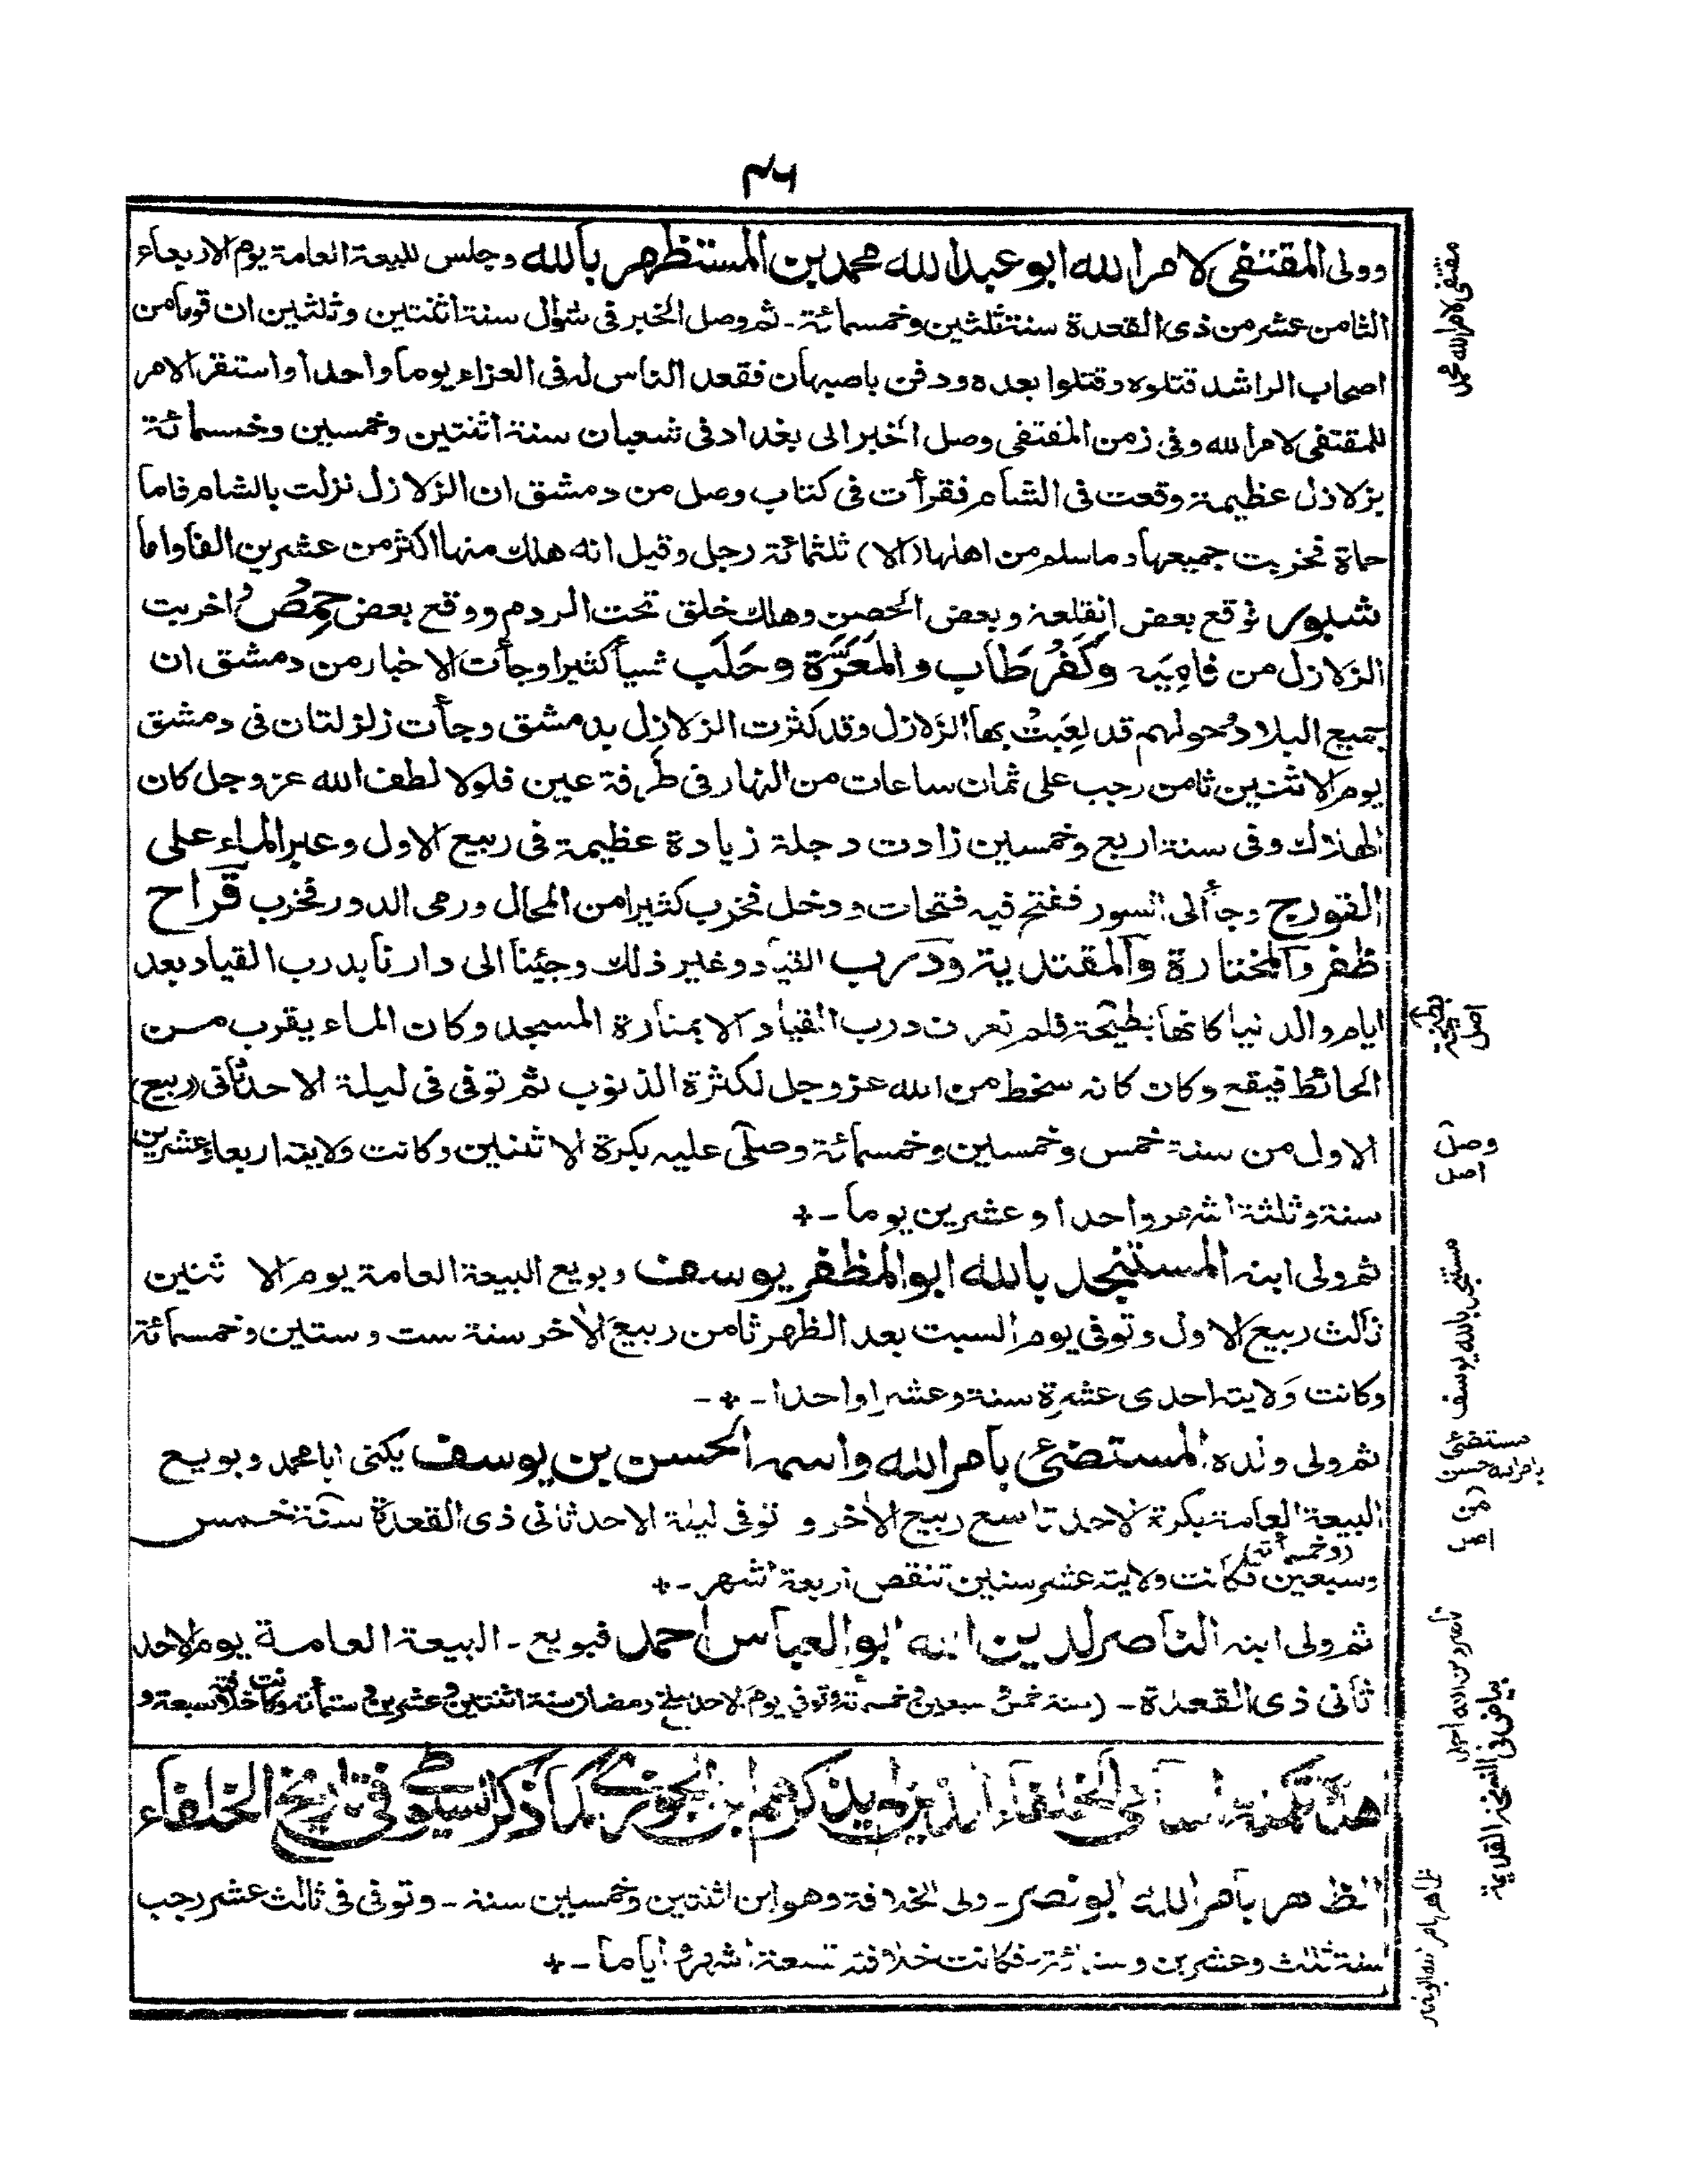 ٤٦
وولى المقتفى لامر الله ابو عبد الله محمد بن المستظهر بالله وجلس للبيعة العامة يوم الاربعاء
الثامن عشر من ذى القعدة سنة ثلثين وخمسمائة ـ ثم وصل الخبر فى شوال سنة اثنتين وثلثين ان قوما من
اصحاب الراشد قتلوه وقتلوا بعده ودفن باصبهان فقعد الناس له فى العزاء يوما واحدا واستقر الامر
للمقتفى لامر الله وفى زمن المقتفى وصل الخبر الى بغداد فى شعبان سنة اثنتين وخمسين وخمسمائة
بزلازل عظيمة وقعت فى الشام فقرأت فى كتاب وصل من دمشق ان الزلازل نزلت بالشام فاما
حماة فخربت جميعها وما سلم من اهلها (الا) ثلثمائة رجل وقيل انه هلك منها اكثر من عشرين الفا واما
شيزر فوقع بعض القلعة وبعض الحصن وهلك خلق تحت الردم ووقع بعض حِمْصُ واخربت
الزلازل من فامِيَه وكَفُرْطَاب والمَعَرَّة وحَلَب شيأ كثيرا وجأت الاخبار من دمشق ان
جميع البلاد حولهم قد لعِبَتْ بها الزلازل وقد كثرت الزلازل بدمشق وجأت زلزلتان فى دمشق
يوم الاثنين ثامن رجب على ثمان ساعات من النهار فى طرفة عين فلولا لطف الله عز وجل كان
الهلاك وفى سنة اربع وخمسين زادت دجلة زيادة عظيمة فى ربيع الاول وعبر الماء على
القورج وجأ الى السور ففتح فيه فتحات ودخل فخرب كثيرا من المحال ورمى الدور فخرب قراح
ظفر والمختارة والمقتدية ودرب القيار وغير ذلك وجئنا الى دارنا بدرب القيار بعد
ايام والدنيا كانها بطيحة فلم نعرف درب القيار الا بمنارة المسجد وكان الماء يقرب من
الحائط فيقع وكان كانه سخط من الله عز وجل لكثرة الذنوب ثم توفى فى ليلة الاحد ثانى (ربيع)
الاول من سنة خمس وخمسين وخمسمائة وصلى عليه بكرة الاثنين وكانت ولايته اربعا وعشرين
سنة وثلثة اشهر واحدا وعشرين يوما ـ +
ثم ولى ابنه المستنجد بالله ابو المظفر يوسف وبويع البيعة العامة يوم الاثنين
ثالث ربيع الاول وتوفى يوم السبت بعد الظهر ثامن ربيع الاخر سنة ست وستين وخمسمائة
وكانت ولايته احدى عشرة سنة وعشرا واحدا ـ + ـ
ثم ولى ولده المستضئ بامر الله واسمه الحسن بن يوسف يكنى ابا محمد وبويع
البيعة العامة بكرة الاحد تاسع ربيع الاخر و توفى ليلة الاحد ثانى ذى القعدة سنة خمس
وسبعين (وخمسمأئة) فكانت ولايته عشر سنين تنقص اربعة اشهر ـ +
ثم ولى ابنه الناصر لدين الله ابو العباس احمد فبويع ـ البيعة العامة يوم الاحد
ثانى ذى القعدة ـ (سنة خمس وسبعين وخمسمأئة وتوفي يوم الاحد سلخ رمضان سنة اثنتين وعشرين وستمأئة وكانت خلافته سبعة و
هذا تكملة اسامى الخلفاء الذين لم يذكرهم ابن الجوزى كما ذكر السيوطى فى تاريخ الخلفاء
الظاهر بامر الله ابو نصر ـ ولى الخلافة وهو ابن اثنتين وخمسين سنة ـ وتوفى فى ثالث عشر رجب
سنة ثلث وعشرين وستمائة ـ فكانت خلافته تسعة اشهر و اياما ـ +
مقتفى لامر الله محمد
اصل
وصل
اصل
مستنجد بالله يوسف
مستضئ بامر الله حسن
(من) اصل
ناصر لدين الله احمد
بياض فى النسخة القديمة
ظاهر بامر الله ابو نصر